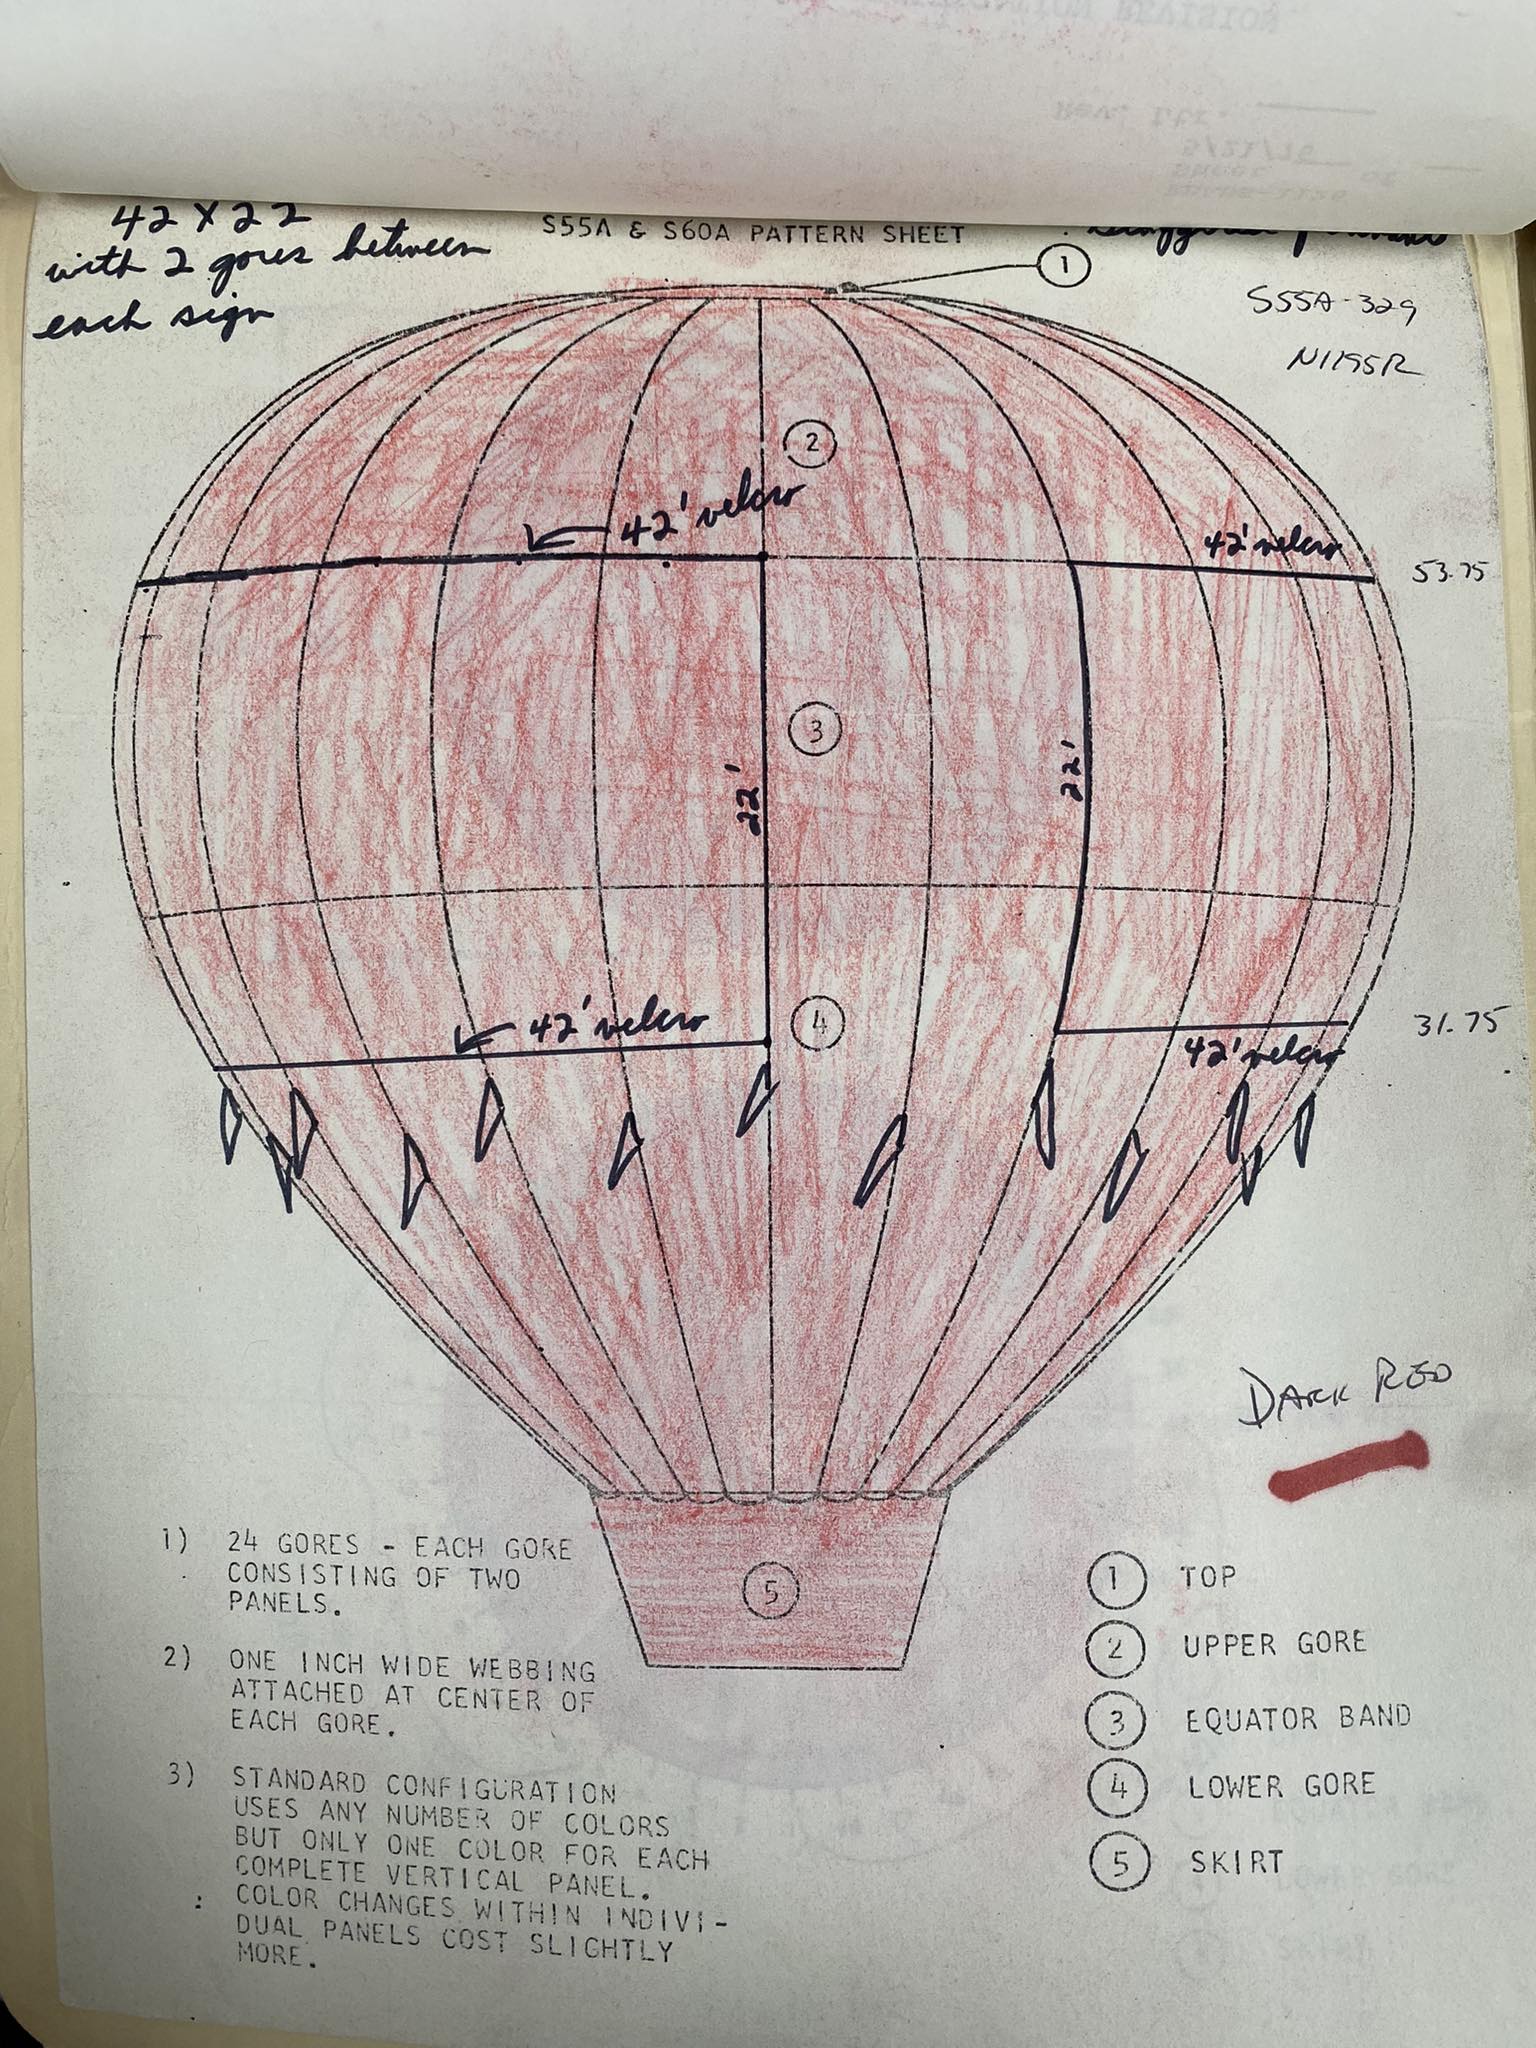 42 X 22
with 2 gores between
each sign
S55A & S60A PATTERN SHEET
1
S55A-329
N1195R
2
42' velcro
42' velcro
53.75
3
22'
22'
4
42' velcro
31.75
42' velcro
DARK RED
5
1) 24 GORES - EACH GORE
CONSISTING OF TWO
PANELS.
2) ONE INCH WIDE WEBBING
ATTACHED AT CENTER OF
EACH GORE.
3) STANDARD CONFIGURATION
USES ANY NUMBER OF COLORS
BUT ONLY ONE COLOR FOR EACH
COMPLETE VERTICAL PANEL.
COLOR CHANGES WITHIN INDIVI-
DUAL PANELS COST SLIGHTLY
MORE.
1 TOP
2 UPPER GORE
3 EQUATOR BAND
4 LOWER GORE
5 SKIRT